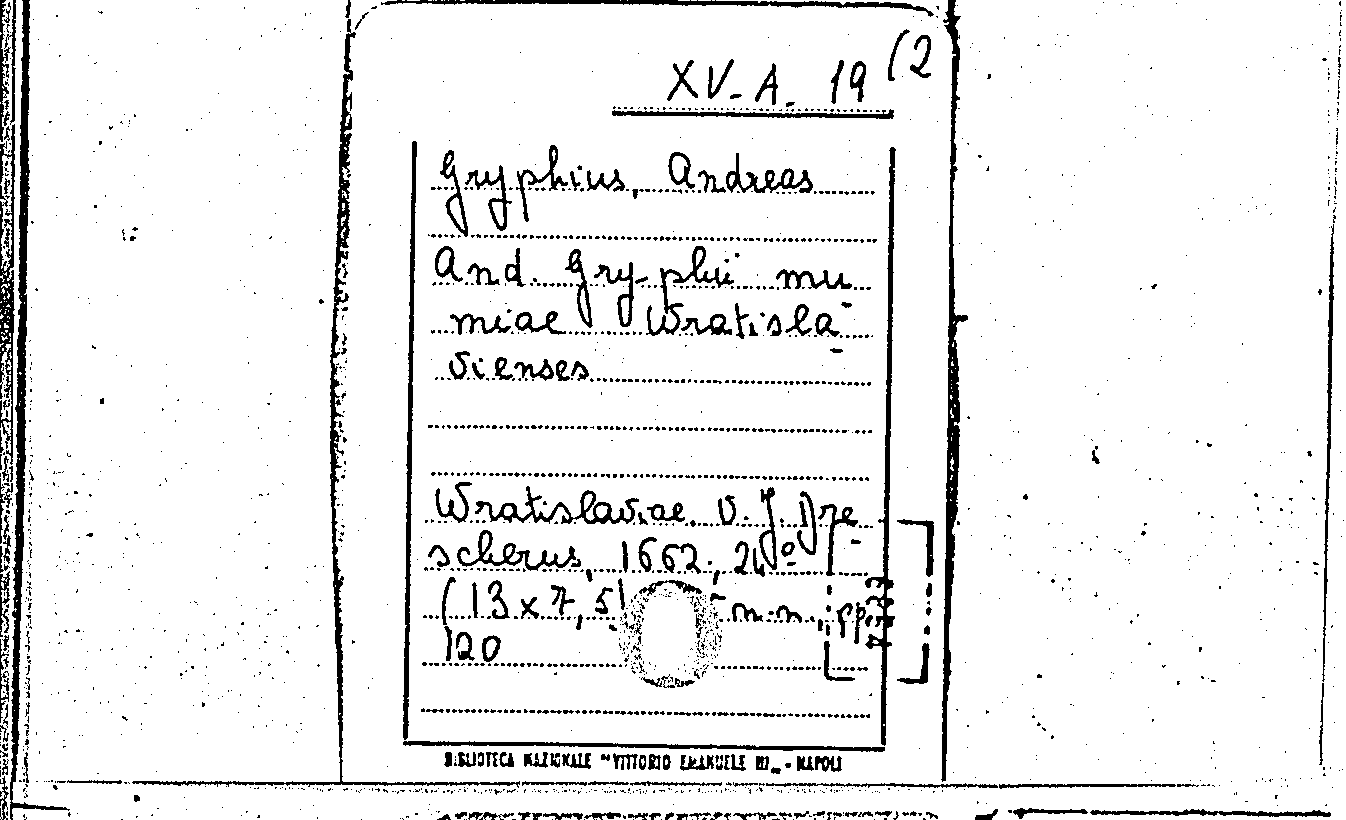 XV-A. 19 (2
Gryphius, Andreas
And. Gryphii mu-
miae Wratisla-
vienses
Wratislaviae, V. J. Dre-
scherus, 1662; 24º
(13 x 7,5) n.n., pp.
120
BIBLIOTECA NAZIONALE "VITTORIO EMANUELE III" - NAPOLI